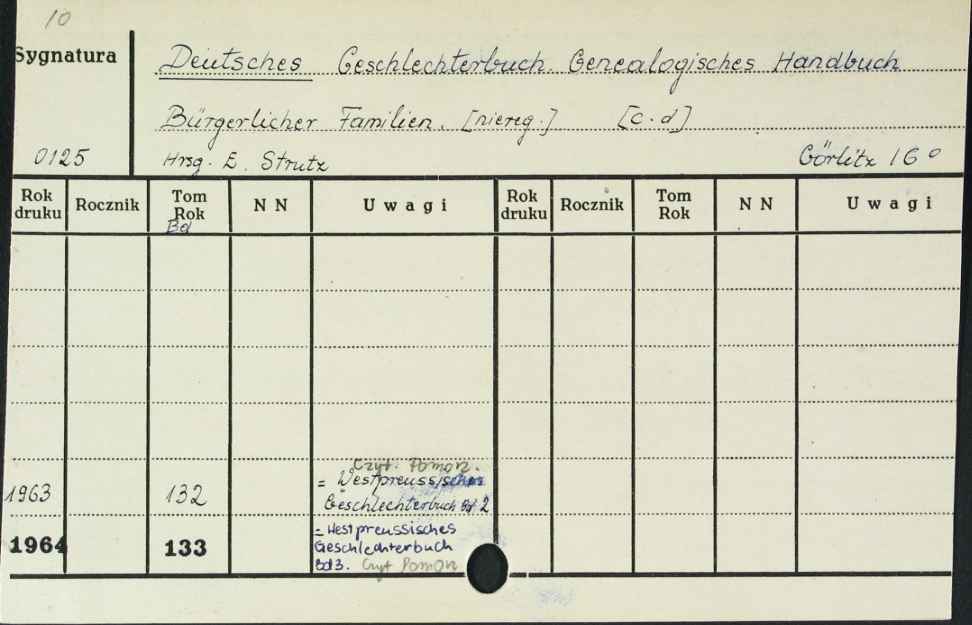 10
Sygnatura
Deutsches Geschlechterbuch. Genealogisches Handbuch
Bürgerlicher Familien. [niereg.] [c.d]
0125
Hrsg. E. Strutz Görlitz 16°
Rok druku Rocznik Tom Rok Bd NN Uwagi Rok druku Rocznik Tom Rok NN Uwagi
Czyt. Pomorz.
1963 132 = Westpreussisches
Geschlechterbuch Bd 2
1964 133 = Westpreussisches
Geschlechterbuch
Bd 3. Czyt Pomorz